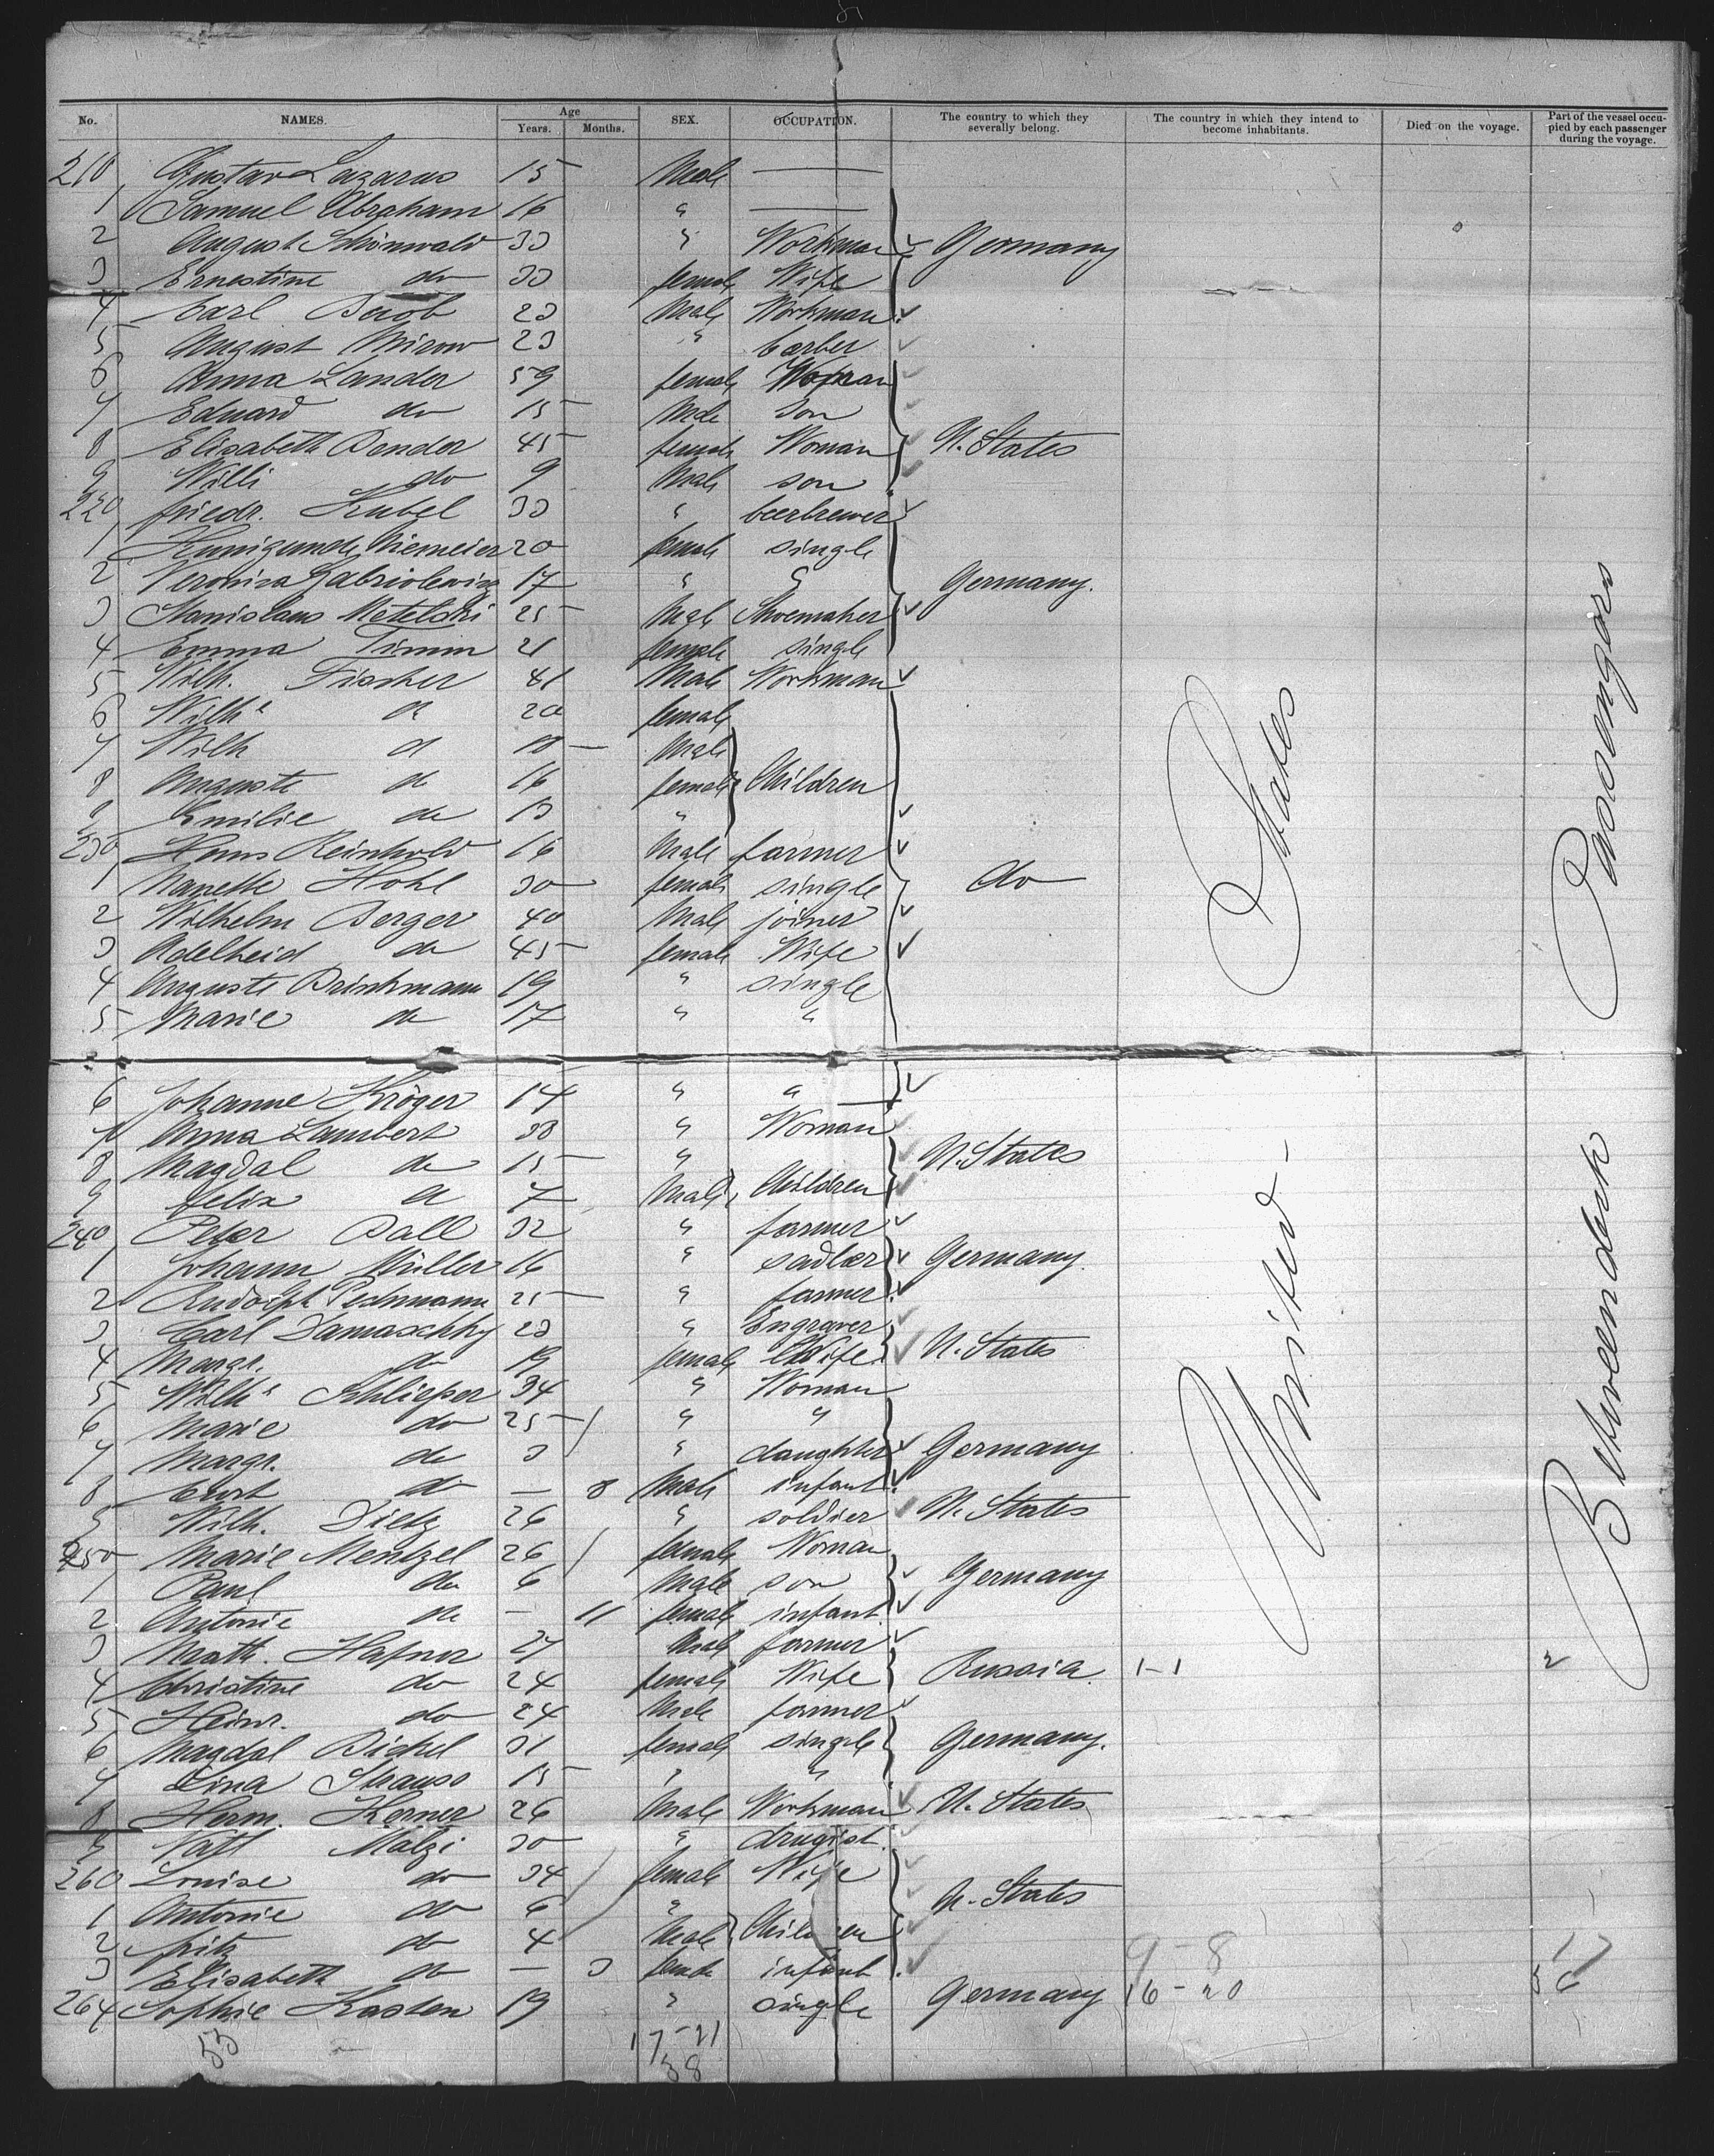 No. NAMES. Age Years. Months. SEX. OCCUPATION. The country to which they severally belong. The country in which they intend to become inhabitants. Died on the voyage. Part of the vessel occupied by each passenger during the voyage.
210 Gustav Lazarus 15 Male —
1 Samuel Abraham 16 " —
2 August Schönwald 33 " Workman Germany
3 Ernestine do 33 female Wife
4 Carl 23 Male Workman
5 August Mirow 23 " barber
6 Anna Lander 59 female Woman
7 Eduard do 15 Male Son
8 Elisabeth Bender 45 female Woman U. States
9 Willi do 9 Male son
220 friedr. Kubel 33 " beerbrewer
1 Kunigunde Niemeier 20 female single
2 Veronica 17 " " Germany.
3 Stanislaus 25 Male Shoemaker
4 Emma Timm 21 female single
5 Wilh. Fischer 41 Male Workman
6 Wilhe do 20 female
7 Wilh do 18 Male
8 Auguste do 16 female Children
9 Emilie do 13 "
230 Hans Reinhold 16 Male farmer
1 Nanette Hohl 30 female single do
2 Wilhelm Berger 40 Male joiner
3 Adelheid do 45 female Wife
4 Auguste Brinkmann 19 " single
5 Marie do 17 " "
6 Johanne Kröger 14 " "
7 Anna Lambert 38 " Woman
8 Magdal do 15 " U. States
9 felix do 7 Male Children
240 Peter Dall 32 " farmer
1 Johann Müller 16 " sadler Germany.
2 Rudolph Pechmann 25 " farmer
3 Carl Damaschky 23 " Engraver
4 Margr. do 19 female Wife U. States
5 Wilhe Schlieper 34 " Woman
6 Marie do 25 " "
7 Margr. do 3 " daughter Germany
8 Curt do — 8 Male infant
9 Wilh. Dietz 26 " soldier U. States
250 Marie Mentzel 26 female Woman
1 Paul do 6 Male son Germany
2 Antonie do — 11 female infant
3 Math. Hafner 27 Male farmer
4 Christine do 24 female Wife Russia 1-1 2
5 Heinr. do 24 Male farmer
6 Magdal Bickel 31 female single Germany.
7 Lina Strauss 15 " "
8 Herm. Kerner 26 Male Workman U. States
9 Malzi 30 " drugist.
260 Louise do 34 female Wife
1 Antonie do 6 " U. States
2 fritz do 4 Male Children
3 Elisabeth do — 3 female infant 9-8 17
264 Sophie Kasten 19 " single Germany 16-20 36
55 17-21
38
United States
Betweendeck Passengers